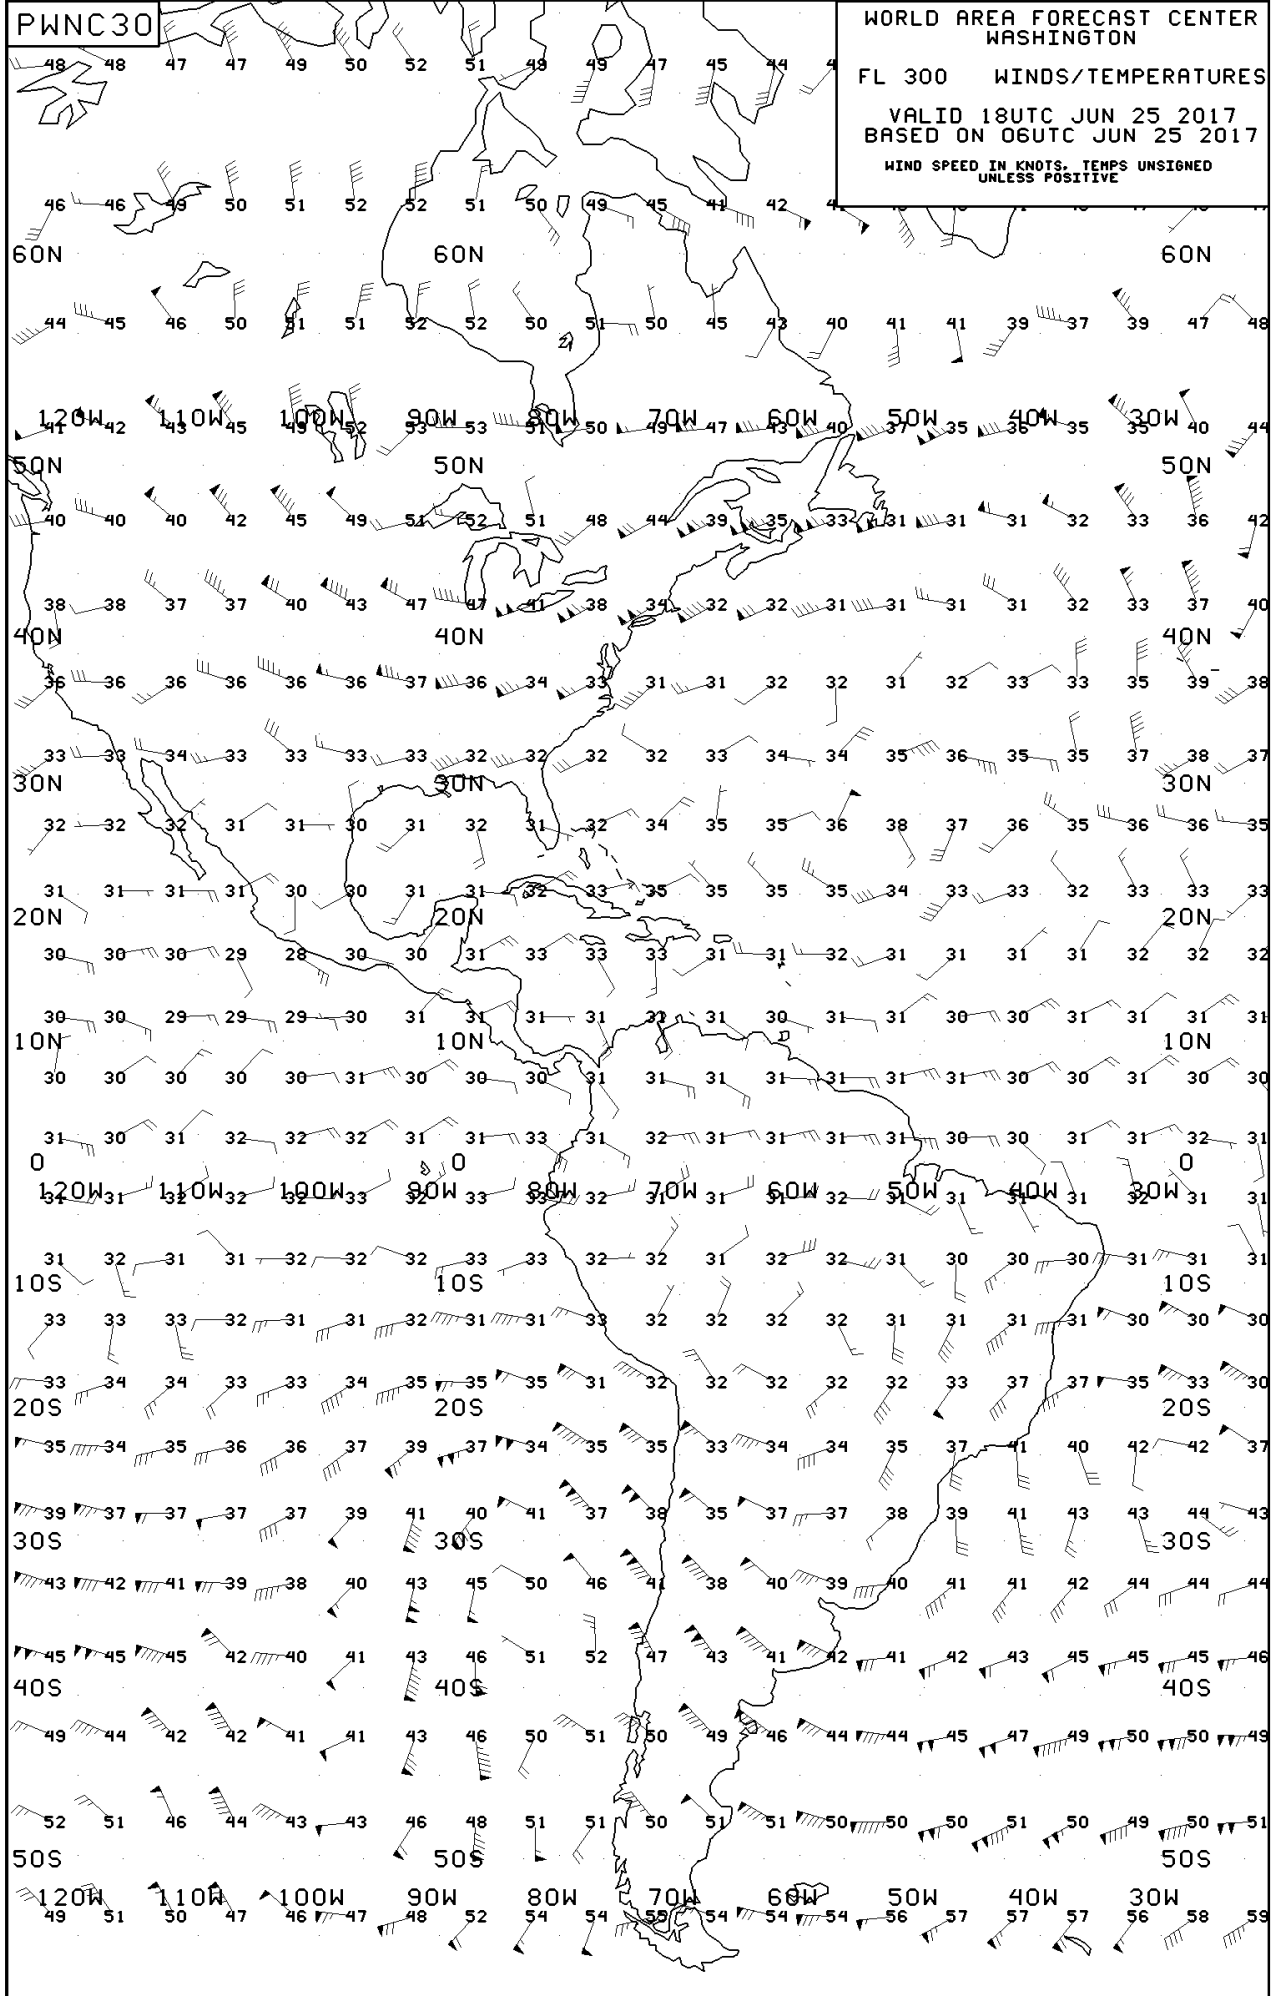 PWNC30
WORLD AREA FORECAST CENTER
WASHINGTON
FL 300 WINDS/TEMPERATURES
VALID 18UTC JUN 25 2017
BASED ON 06UTC JUN 25 2017
WIND SPEED IN KNOTS, TEMPS UNSIGNED
UNLESS POSITIVE
48 48 47 47 49 50 52 51 49 49 47 45 44
46 46 49 50 51 52 52 51 50 49 45 41 42
60N 60N 60N
44 45 46 50 51 51 52 52 50 51 50 45 43 40 41 41 39 37 39 47 48
120W 110W 100W 90W 80W 70W 60W 50W 40W 30W
41 42 43 45 49 52 53 53 51 50 49 47 43 40 37 35 36 35 35 40 44
50N 50N 50N
40 40 40 42 45 49 51 52 51 48 44 39 35 33 31 31 31 32 33 36 42
38 38 37 37 40 43 47 47 41 38 34 32 32 31 31 31 31 32 33 37 40
40N 40N 40N
36 36 36 36 36 36 37 36 34 33 31 31 32 32 31 32 33 33 35 39 38
33 33 34 33 33 33 33 32 32 32 32 33 34 34 35 36 35 35 37 38 37
30N 30N 30N
32 32 32 31 31 30 31 32 31 32 34 35 35 36 38 37 36 35 36 36 35
31 31 31 31 30 30 31 31 32 33 35 35 35 35 34 33 33 32 33 33 33
20N 20N 20N
30 30 30 29 28 30 30 31 33 33 33 31 31 32 31 31 31 31 32 32 32
30 30 29 29 29 30 31 31 31 31 31 31 30 31 31 30 30 31 31 31 31
10N 10N 10N
30 30 30 30 30 31 30 30 30 31 31 31 31 31 31 31 30 30 31 30 30
31 30 31 32 32 32 31 31 33 31 32 31 31 31 31 30 30 31 31 32 31
0 0 0
120W 110W 100W 90W 80W 70W 60W 50W 40W 30W
31 31 32 32 32 33 32 33 33 32 31 31 31 32 31 31 31 31 32 31 31
31 32 31 31 32 32 32 33 33 32 32 31 32 32 31 30 30 30 31 31 31
10S 10S 10S
33 33 33 32 31 31 32 31 31 33 32 32 32 32 31 31 31 31 30 30 30
33 34 34 33 33 34 35 35 35 31 32 32 32 32 32 33 37 37 35 33 30
20S 20S 20S
35 34 35 36 36 37 39 37 34 35 35 33 34 34 35 37 41 40 42 42 37
39 37 37 37 37 39 41 40 41 37 38 35 37 37 38 39 41 43 43 44 43
30S 30S 30S
43 42 41 39 38 40 43 45 50 46 41 38 40 39 40 41 41 42 44 44 44
45 45 45 42 40 41 43 46 51 52 47 43 41 42 41 42 43 45 45 45 46
40S 40S 40S
49 44 42 42 41 41 43 46 50 51 50 49 46 44 44 45 47 49 50 50 49
52 51 46 44 43 43 46 48 51 51 50 51 51 50 50 50 51 50 49 50 51
50S 50S 50S
120W 110W 100W 90W 80W 70W 60W 50W 40W 30W
49 51 50 47 46 47 48 52 54 54 55 54 54 54 56 57 57 57 56 58 59